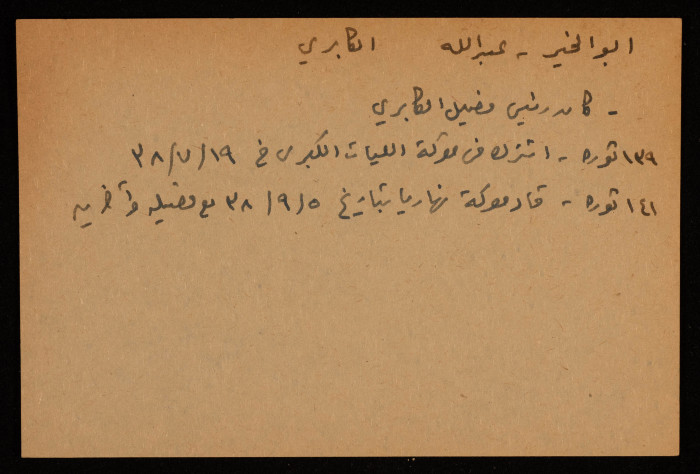 ابو الخير - عبدالله الكابري
- كان رئيس فصيل الكابري
١٣٩ ثوره - اشترك في معركة الليات الكبرى في ١٩/٧/٣٨
١٤١ ثوره - قاد معركة نهاريا بتاريخ ٥/٩/٣٨ مع فصيله وآخرين